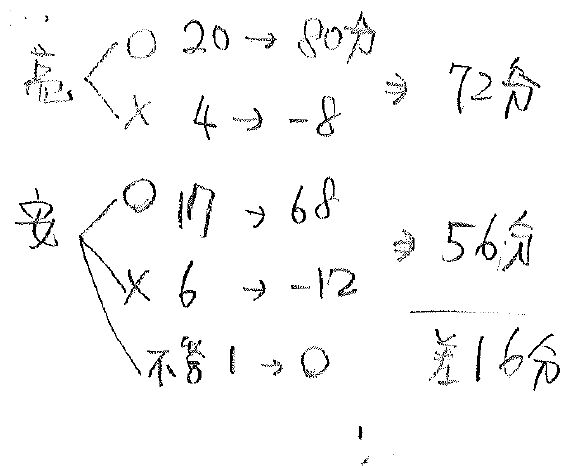 亮 O 20 → 80分
X 4 → -8 ⇒ 72分
安 O 17 → 68
X 6 → -12 ⇒ 56分
不答 1 → 0 差16分